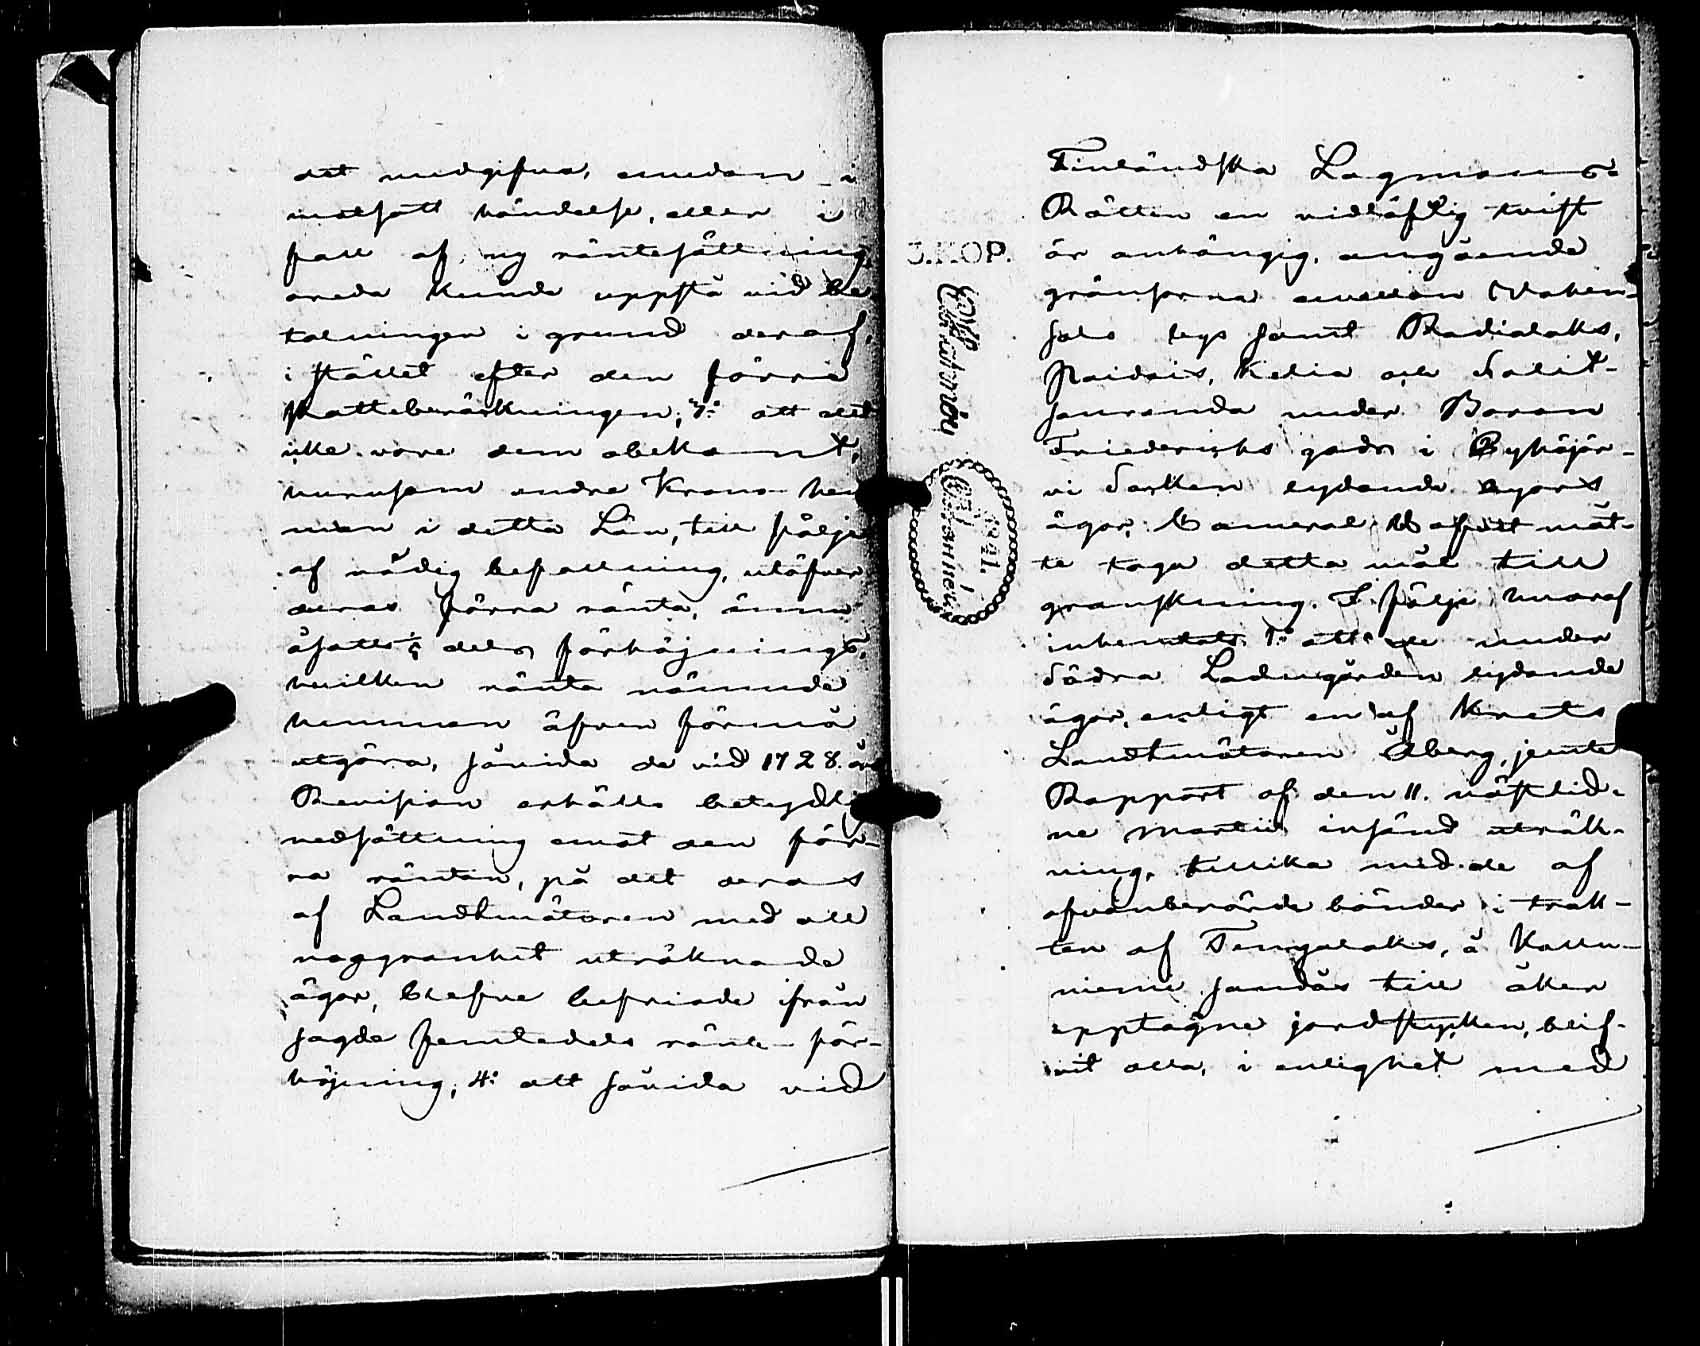 det medgifva, emedan i
motsatt händelse, eller i
fall af ny räntesättning,
oreda kunde uppstå vid be-
talningen i grund deraf,
i stället efter den förra
skatteberäkningen; 3:o att det
icke vore dem obekant,
hurusom andre Krono hem-
man i detta Län, till följe
af nådig befallning, utöfver
deras förra ränta, ännu
åsatts 1/5 dels förhöjning,
hvilken ränta nämnde
hemman äfven förmå
utgöra, såvida de vid 1728 års
Revision erhålla betydlig
nedsättning emot den för-
ra räntan, på det deras
af Landtmätaren med all
noggranhet uträknade
ägor, blefve befriade ifrån
sagde femtedels ränte för-
höjning; 4:o att såvida vid
Finländska Lagmans-
Rätten en vidläftig tvist
är anhängig, angående
gränsorna emellan
salo bys samt Radialaks,
Kelia och Salit-
sauranda under Baron
Friedericks gods i Pyhäjär-
vi Socken lydande byars
ägor, Cameral måt-
te taga detta mål till
granskning. I följe hvaraf
inhemtats 1:o att de under
Södra Ladugården lydande
ägor, enligt en af Krets
Landtmätaren Åberg, jemte
Rapport af den 11. nästlid-
ne Martii insänd uträk-
ning, tillika med de af
ofvanberörde bönder i trak-
ten af å
niemi sandås till åker
upptagne jordstycken, blif-
vit alla, i enlighet med
3. KOP.
1841.